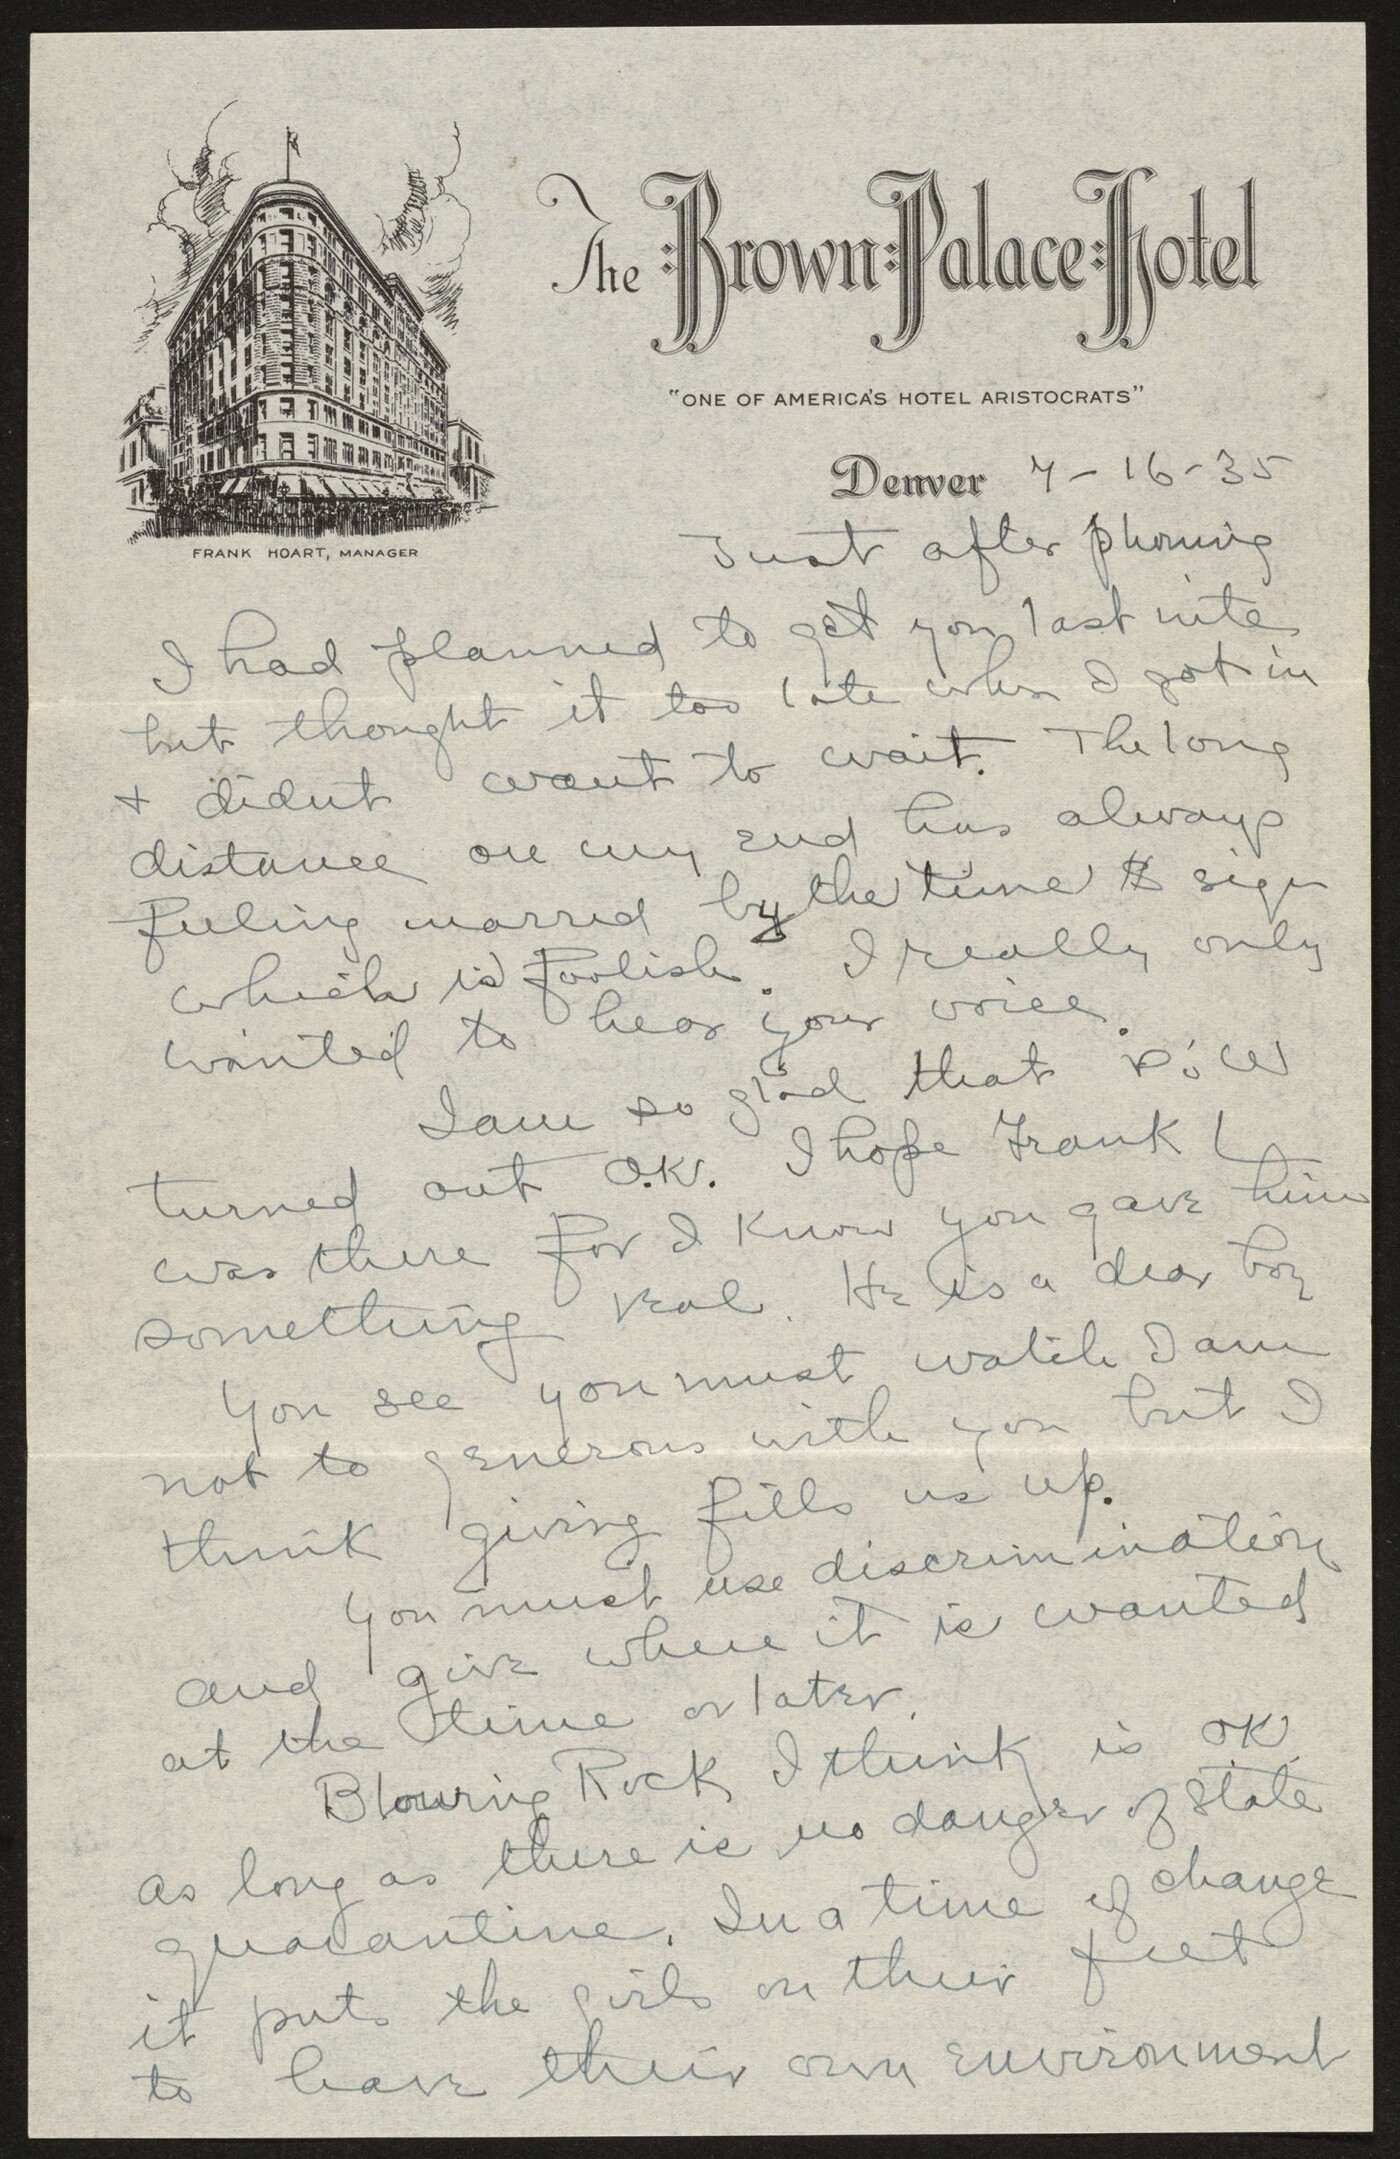 The Brown Palace Hotel
"ONE OF AMERICA'S HOTEL ARISTOCRATS"
FRANK HOART, MANAGER
Denver 7-16-35
Just after phoning
I had planned to get you last nite
but thought it too late when I got in
+ didnt want to wait. The long
distance on my end has always
feeling marred by the time $ sign
which is foolish. I really only
wanted to hear your voice.
I am so glad that
turned out O.K. I hope Frank L
was there for I know you gave him
something real. He is a dear boy
You see you must watch I am
not to generous with you but I
think giving fills us up.
You must use discrimination
and give where it is wanted
at the time or later.
Blowing Rock I think is OK
as long as there is no danger of State
quarantine. In a time of change
it puts the girls on their feet
to have their own environment